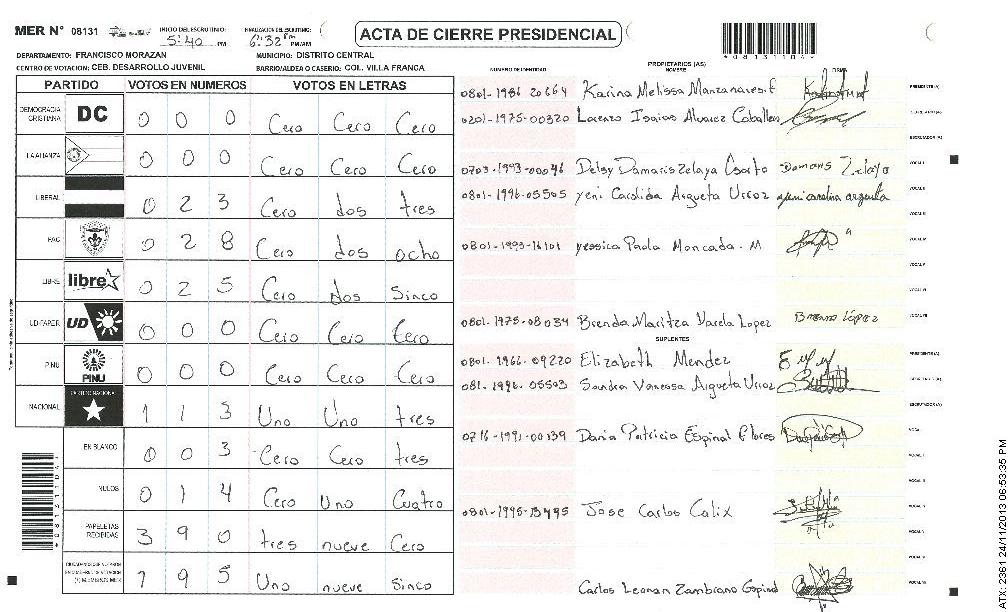 MER N° 08131 INICIO DEL ESCRUTINIO: 5:40 PM FINALIZACION DEL ESCRUTINIO: 6:32 PM PM/AM
ACTA DE CIERRE PRESIDENCIAL
*08131104*
DEPARTAMENTO: FRANCISCO MORAZAN MUNICIPIO: DISTRITO CENTRAL
CENTRO DE VOTACION: CEB. DESARROLLO JUVENIL BARRIO/ALDEA O CASERIO: COL. VILLA FRANCA
PARTIDO VOTOS EN NUMEROS VOTOS EN LETRAS
DEMOCRACIA CRISTIANA DC 0 0 0 Cero Cero Cero
LA ALIANZA 0 0 0 Cero Cero Cero
LIBERAL 0 2 3 Cero dos tres
PAC 0 2 8 Cero dos ocho
LIBRE libre 0 2 5 Cero Dos Sinco
UD-FAPER UD 0 0 0 Cero Cero Cero
PINU PINU 0 0 0 Cero Cero Cero
NACIONAL PARTIDO NACIONAL 1 1 3 Uno Uno tres
EN BLANCO 0 0 3 Cero Cero tres
NULOS 0 1 4 Cero Uno Cuatro
PAPELETAS RECIBIDAS 3 9 0 tres nueve Cero
1 9 5 Uno nueve Sinco
NUMERO DE IDENTIDAD PROPIETARIOS (AS) NOMBRE FIRMA
0801-1986 20664 Karina Melissa Manzanares f PRESIDENTE (A)
0201-1975-00320 Lorenzo Isaias Alvarez Caballero SECRETARIO (A)
ESCRUTADOR (A)
0703-1993-00046 Delsy Damaris Zelaya Damaris Zelaya VOCAL I
0801-1996-05505 yeni Carolina Argueta Urroz yeni carolina argueta VOCAL II
VOCAL III
0801-1993-16101 yessica Paola Moncada. M VOCAL IV
VOCAL V
VOCAL VI
0801-1975-08034 Brenda Maritza Varela Lopez Brenda López VOCAL VII
SUPLENTES
0801-1966-09220 Elizabeth Mendez PRESIDENTE (A)
081-1996-05503 Sandra Vanessa Argueta Urroz SECRETARIO (A)
ESCRUTADOR (A)
0716-1991-00139 Dania Patricia Espinal Flores VOCAL I
VOCAL II
VOCAL III
0801-1995-13495 Jose Carlos Calix VOCAL IV
VOCAL V
VOCAL VI
Carlos Leonan Zambrano Espinal VOCAL VII
ATX-2361 24/11/2013 06:53:35 PM